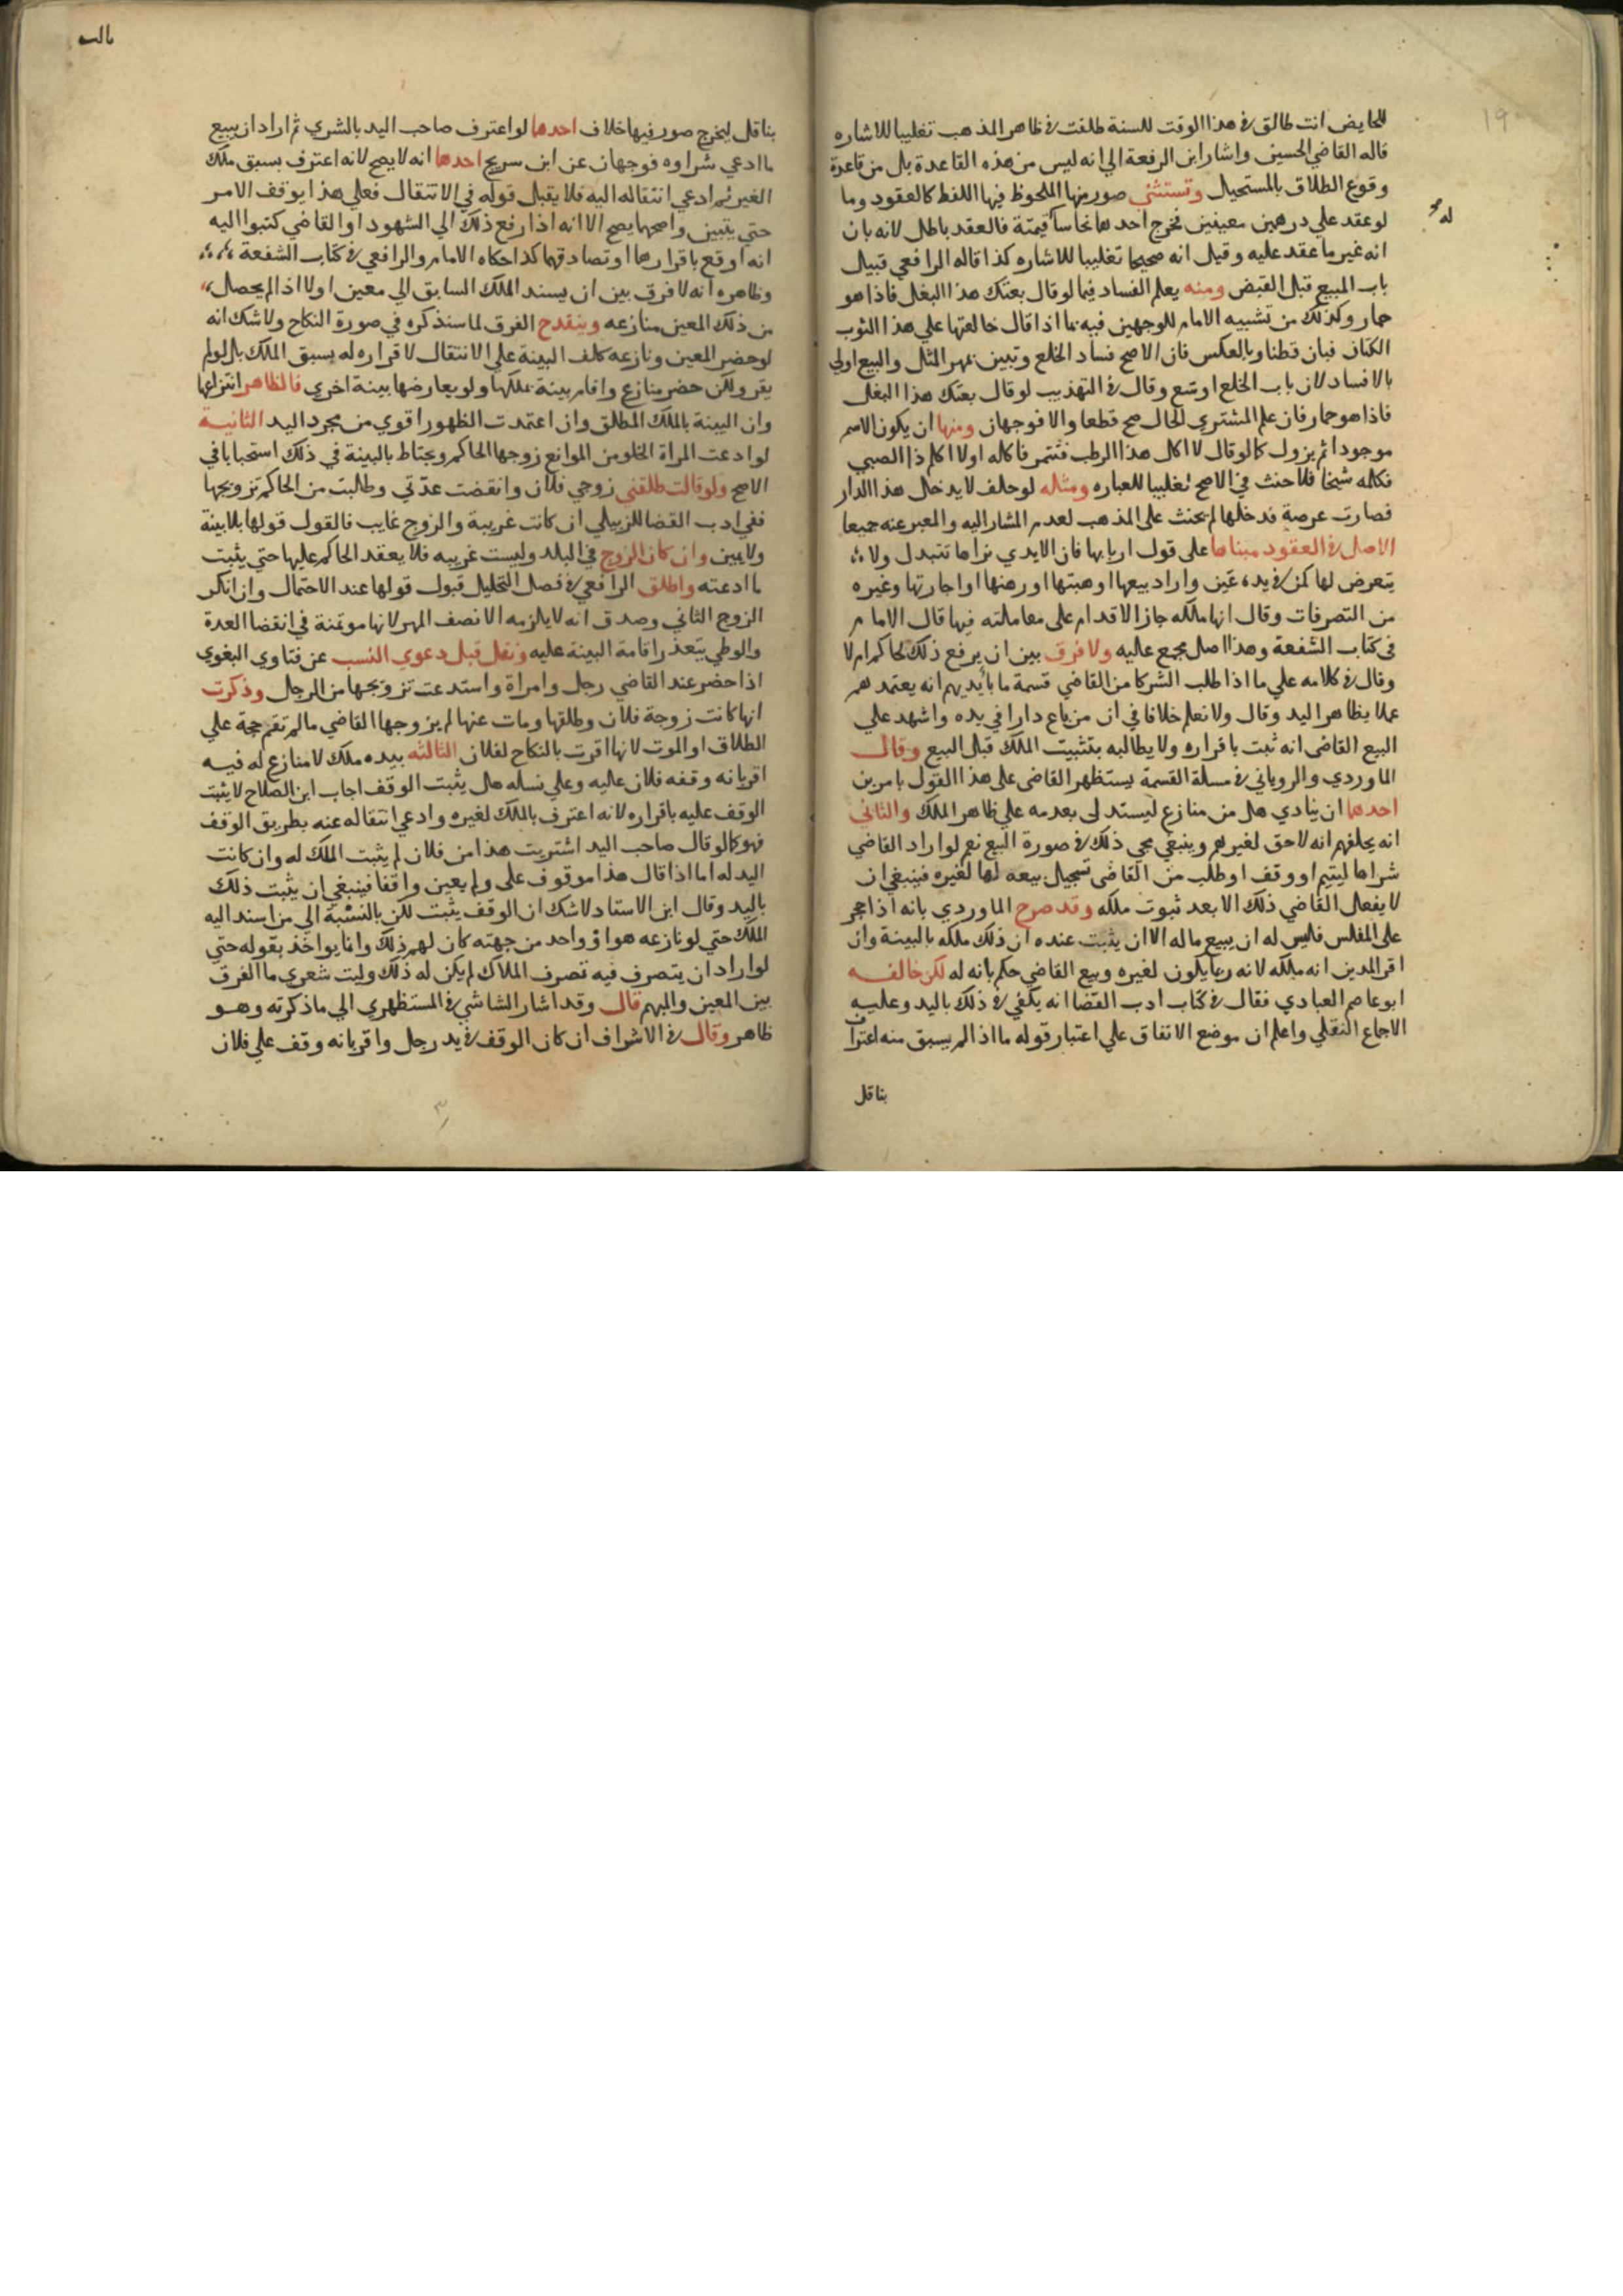 ١٩
للحايض انت طالق في هذا الوقت للسنة طلقت في ظاهر المذهب تغليبا للاشاره
قاله القاضي الحسين واشار ابن الرفعة الي انه ليس من هذه القاعدة بل من قاعدة
وقوع الطلاق بالمستحيل وتستثنى صور منها الملحوظ فيها اللفظ كالعقود وما
له
لو عقد علي درهمين معينين فخرج احدهما نحاسا قيمته فالعقد باطل لانه بان
انه غير ما عقد عليه وقيل انه صحيحا تغليبا للاشاره كذا قاله الرافعي قبيل
باب المبيع قبل القبض ومنه يعلم الفساد فيما لو قال بعتك هذا البغل فاذا هو
حمار وكذلك من تشبيه الامام للوجهين فيه بما اذا قال خالعتها علي هذا الثوب
الكتان فبان قطنا وبالعكس فان الاصح فساد الخلع وتبين بمهر المثل والبيع اولي
بالافساد لان باب الخلع اوسع وقال في التهذيب لو قال بعتك هذا البغل
فاذا هو حمار فان علم المشتري الحال صح قطعا والا فوجهان ومنها ان يكون الاسم
موجودا ثم يزول كما لو قال لا اكل هذا الرطب فتتمر فاكله او لا اكلم ذا الصبي
فكلمه شيخا فلا حنث في الاصح تغليبا للعباره ومثله لو حلف لا يدخل هذا الدار
فصارت عرصة فدخلها لم يحنث على المذهب لعدم المشار اليه والمعبر عنه جميعا
الاصل في العقود مبناها على قول اربابها فان الايدي نراها تتبدل ولا
يتعرض لها كمن في يده عين واراد بيعها او هبتها او رهنها او اجارتها وغيره
من التصرفات وقال انها ملكه جاز الاقدام على معاملته فيها قال الامام
في كتاب الشفعة وهذا اصل مجمع عليه ولا فرق بين ان يرفع ذلك لحاكم ام لا
وقال في كلامه علي ما اذا طلب الشركا من القاضي قسمة ما بأيديهم انه يعتمدهم
عملا بظاهر اليد وقال ولا نعلم خلافا في ان من باع دارا في يده واشهد علي
البيع القاضي انه ثبت باقراره ولا يطالبه بتثبيت الملك قبل البيع وقال
الماوردي والروياني في مسلة القسمة يستظهر القاضي على هذا القول بامرين
احدهما ان ينادي هل من منازع ليستدل بعدمه علي ظاهر الملك والثاني
انه يحلفهم انه لا حق لغيرهم وينبغي مجي ذلك في صورة البيع نعم لو اراد القاضي
شراها ليتيم او وقف او طلب من القاضي تسجيل بيعه لها لغيره فينبغي ان
لا يفعل القاضي ذلك الا بعد ثبوت ملكه وقد صرح الماوردي بانه اذا حجر
على المفلس فليس له ان يبيع ماله الا ان يثبت عنده ان ذلك ملكه بالبينة وان
اقر المدين انه ملكه لانه ربما يكون لغيره وبيع القاضي حكم بانه له لكن خالفه
ابو عاصم العبادي فقال في كتاب ادب القضا انه يكفي في ذلك باليد وعليه
الاجماع النقلي واعلم ان موضع الاتفاق علي اعتبار قوله ما اذا لم يسبق منه اعتراف
بناقل
بناقل ليخرج صور فيها خلاف احدها لو اعترف صاحب اليد بالشري ثم اراد ان يبيع
ما ادعي شراوه فوجهان عن ابن سريج احدهما انه لا يصح لانه اعترف بسبق ملك
الغير ثم ادعي انتقاله اليه فلا يقبل قوله في الانتقال فعلي هذا يوقف الامر
حتي يتبين واصحهما يصح الا انه اذا رفع ذلك الي الشهود او القاضي كتبوا اليه
انه اوقع باقرارهما او تصادقهما كذا حكاه الامام والرافعي في كتاب الشفعة
وظاهره انه لا فرق بين ان يسند الملك السابق الي معين او لا اذا لم يحصل
من ذلك المعين منازعه وينقدح الفرق لما سنذكره في صورة النكاح ولا شك انه
لو حضر المعين ونازعه كلف البينة علي الانتقال لاقراره له بسبق الملك بل لو لم
يقر ولكن حضر منازع واقام بينة بملكها ولو يعارضها بينة اخري فالظاهر انتزاعها
وان البينة بالملك المطلق وان اعتمدت الظهور اقوي من مجرد اليد الثانية
لو ادعت المراة الخلو من الموانع زوجها الحاكم ويحتاط بالبينة في ذلك استحبابا في
الاصح ولو قالت طلقني زوجي فلان وانقضت عدتي وطالبت من الحاكم تزويجها
ففي ادب القضا للزبيلي ان كانت غريبة والزوج غايب فالقول قولها بلا بينة
ولا يمين وان كان الزوج في البلد وليست غريبه فلا يعقد الحاكم عليها حتي يثبت
ما ادعته واطلق الرافعي في فصل التحليل قبول قولها عند الاحتمال وان انكر
الزوج الثاني وصدق انه لا يلزمه الا نصف المهر لانها موتمنة في انقضا العدة
والوطي يتعذر اقامة البينة عليه ونقل قبل دعوي النسب عن فتاوي البغوي
اذا حضر عند القاضي رجل وامراة واستدعت تزويجها من الرجل وذكرت
انها كانت زوجة فلان وطلقها او مات عنها لم يزوجها القاضي ما لم تقم حجة علي
الطلاق او الموت لانها اقرت بالنكاح لفلان الثالثه بيده ملك لا منازع له فيه
اقر بانه وقفه فلان عليه وعلي نسله هل يثبت الوقف اجاب ابن الصلاح لا يثبت
الوقف عليه باقراره لانه اعترف بالملك لغيره وادعي انتقاله عنه بطريق الوقف
فهو كما لو قال صاحب اليد اشتريت هذا من فلان لم يثبت الملك له وان كانت
اليد له اما اذا قال هذا موقوف علي ولم يعين واقفا فينبغي ان يثبت ذلك
باليد وقال ابن الاستاد لا شك ان الوقف يثبت لكن بالنسبة الي من اسند اليه
الملك حتي لو نازعه هو او واحد من جهته كان لهم ذلك وانما يواخذ بقوله حتي
لو اراد ان يتصرف فيه تصرف الملاك لم يكن له ذلك وليت شعري ما الفرق
بين المعين والمبهم قال وقد اشار الشاشي في المستظهري الي ما ذكرته وهو
ظاهر وقال في الاشراف ان كان الوقف في يد رجل واقر بانه وقف علي فلان